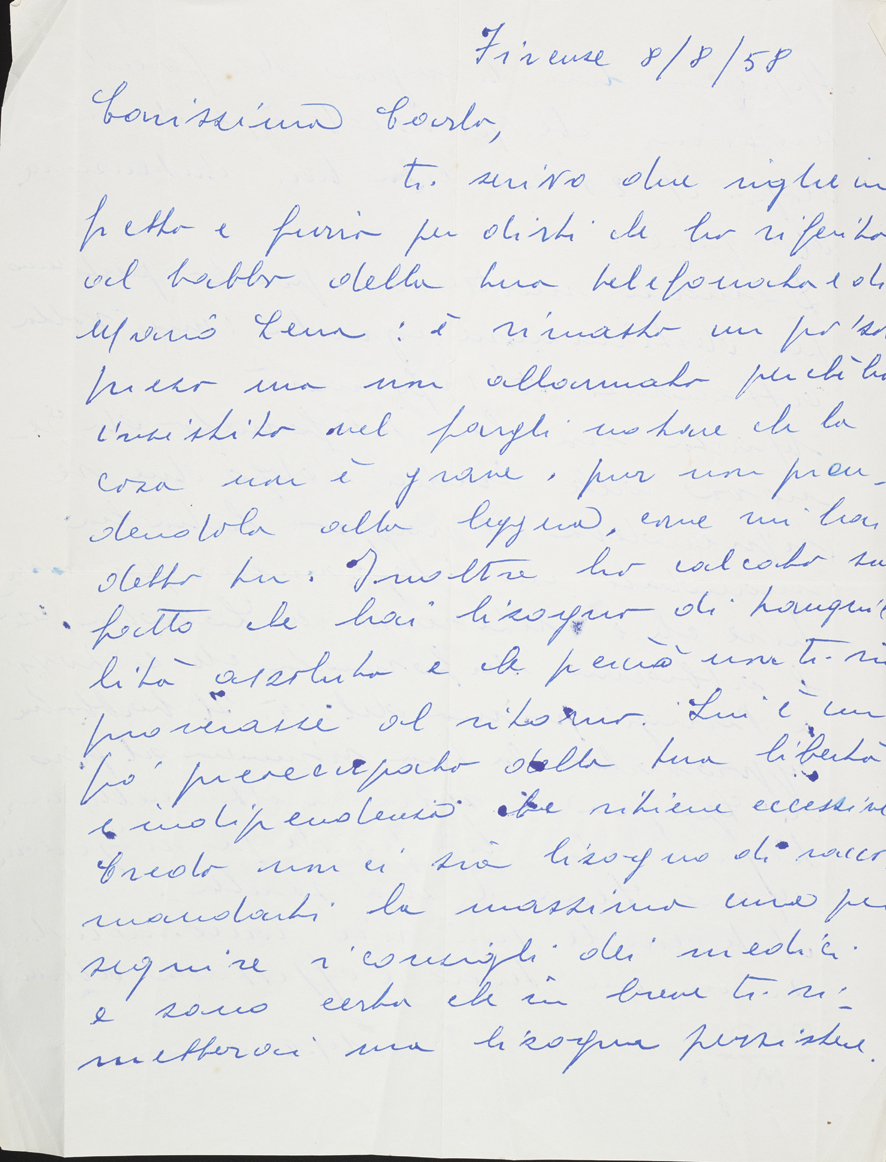 Firenze 8/8/58
Carissima Carla,
ti scrivo due righe in
fretta e furia per dirti che ho riferito
al babbo della tua telefonata e di
Maria Lena : è rimasto un po' sor
preso ma non allarmato perchè ho
insistito nel fargli notare che la
cosa non è grave, pur non pren-
dendola alla leggera, come mi hai
detto tu. Inoltre ho calcato sul
fatto che hai bisogno di tranquil
lità assoluta e che perciò non ti rim
proverasse al ritorno. Lui è un
pò preoccupato della tua libertà
e indipendenza che ritiene eccessive
Credo non ci sia bisogno di racco
mandarti la massima cura per
seguire i consigli dei medici
e sono certa che in breve ti ri-
metterai ma bisogna persistere.